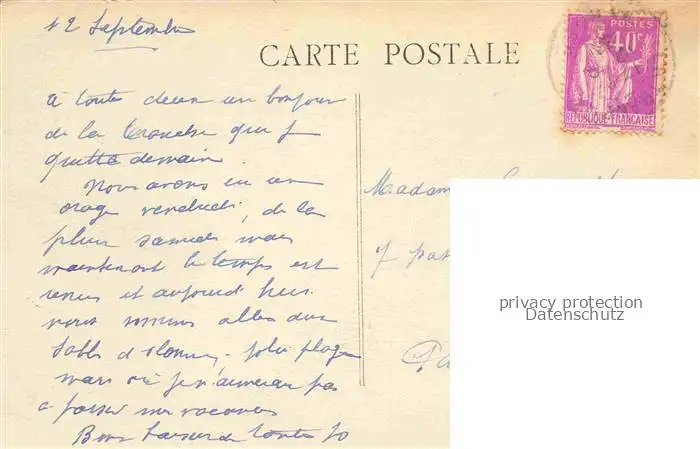 12 Septembre
CARTE POSTALE
POSTES
40c
REPUBLIQUE-FRANÇAISE
à toutes deux un bonjour
de la Tranche que je
quitte demain.
Nous avons eu un
orage vendredi, de la
pluie samedi mais
maintenant le temps est
revenu et aujourd'hui
nous sommes allés aux
Sables d'Olonne, jolie plage
mais où je n'aimerais pas
à passer mes vacances
Bons baisers de toutes
Madam
7 pas
Pa
privacy protection
Datenschutz